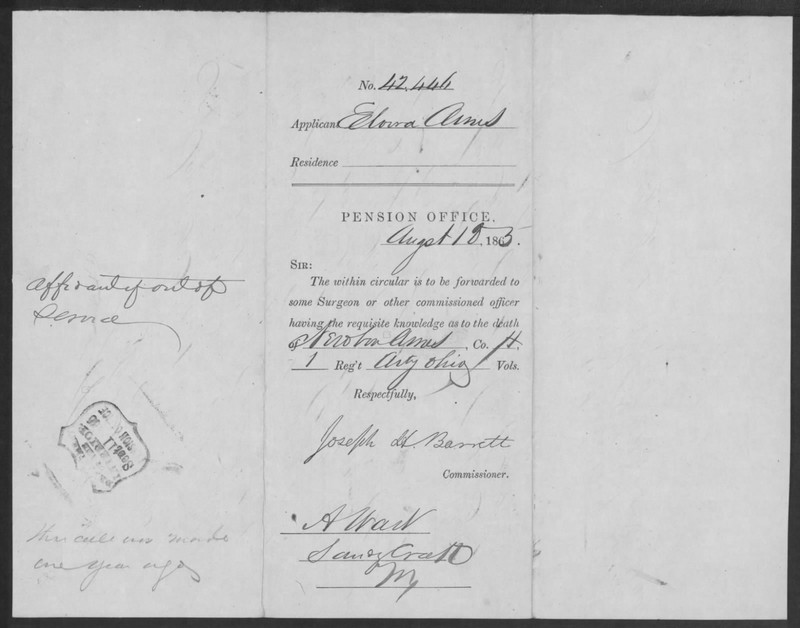 No. 42,446
Applicant Elvira Ames
Residence
PENSION OFFICE,
Augst 18, 1865.
SIR:
The within circular is to be forwarded to
some Surgeon or other commissioned officer
having the requisite knowledge as to the death
of Ames, Co. H,
1 Reg't Arty Ohio Vols.
Respectfully,
Joseph H. Barrett
Commissioner.
A Ward
Sandy
affidavit if out of
Service
this call was made
one year ago